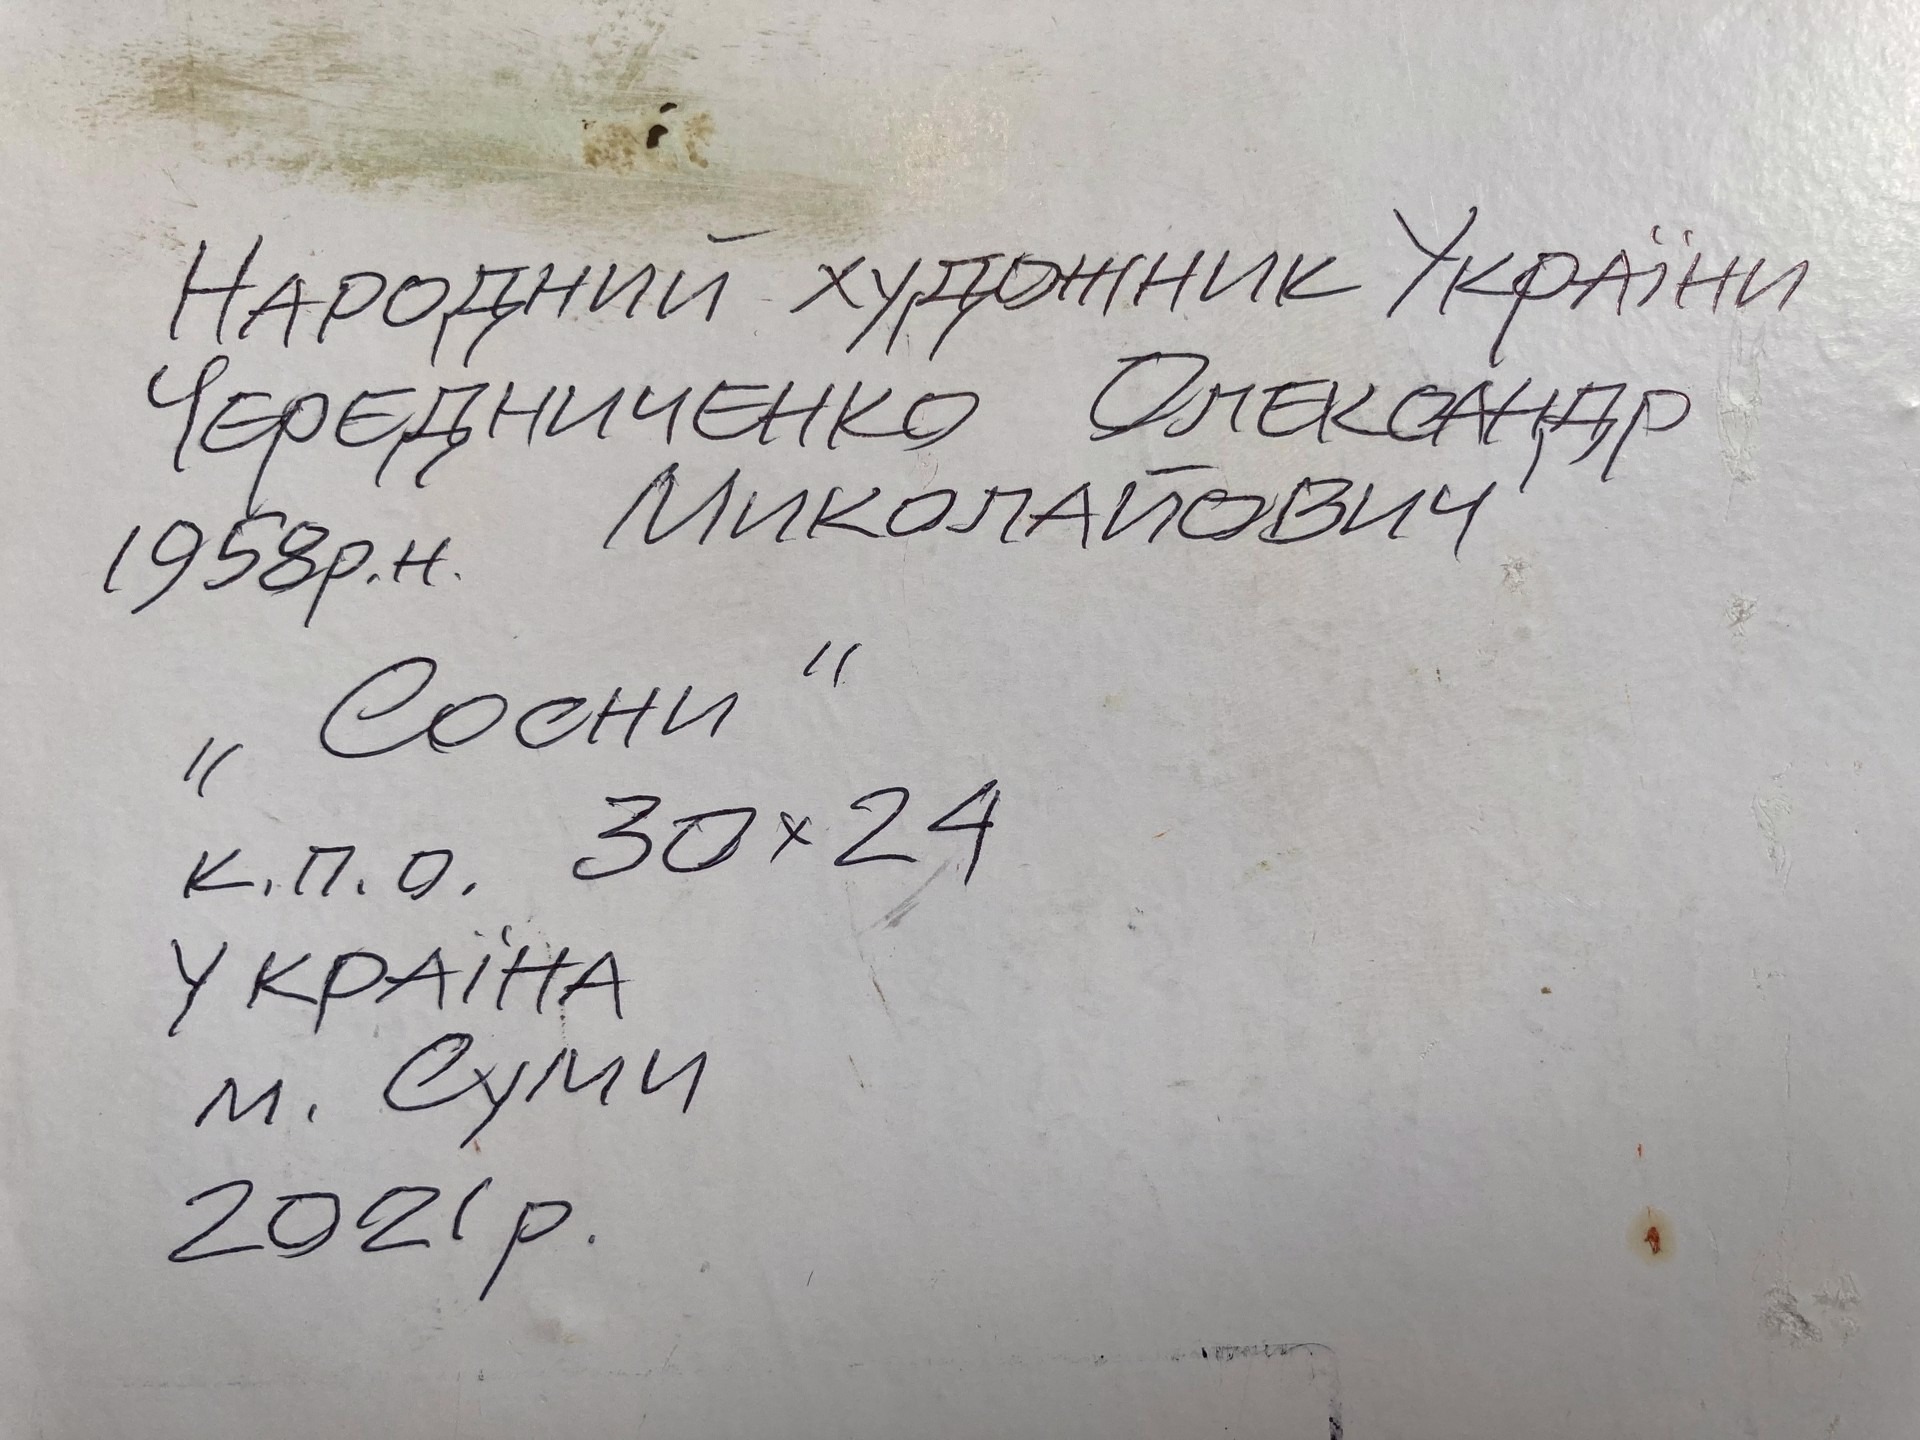 Народний художник України
Чередниченко Олександр
Миколайович
1958р.н.
„Сосни“
к.п.о. 30×24
Україна
м. Суми
2021р.